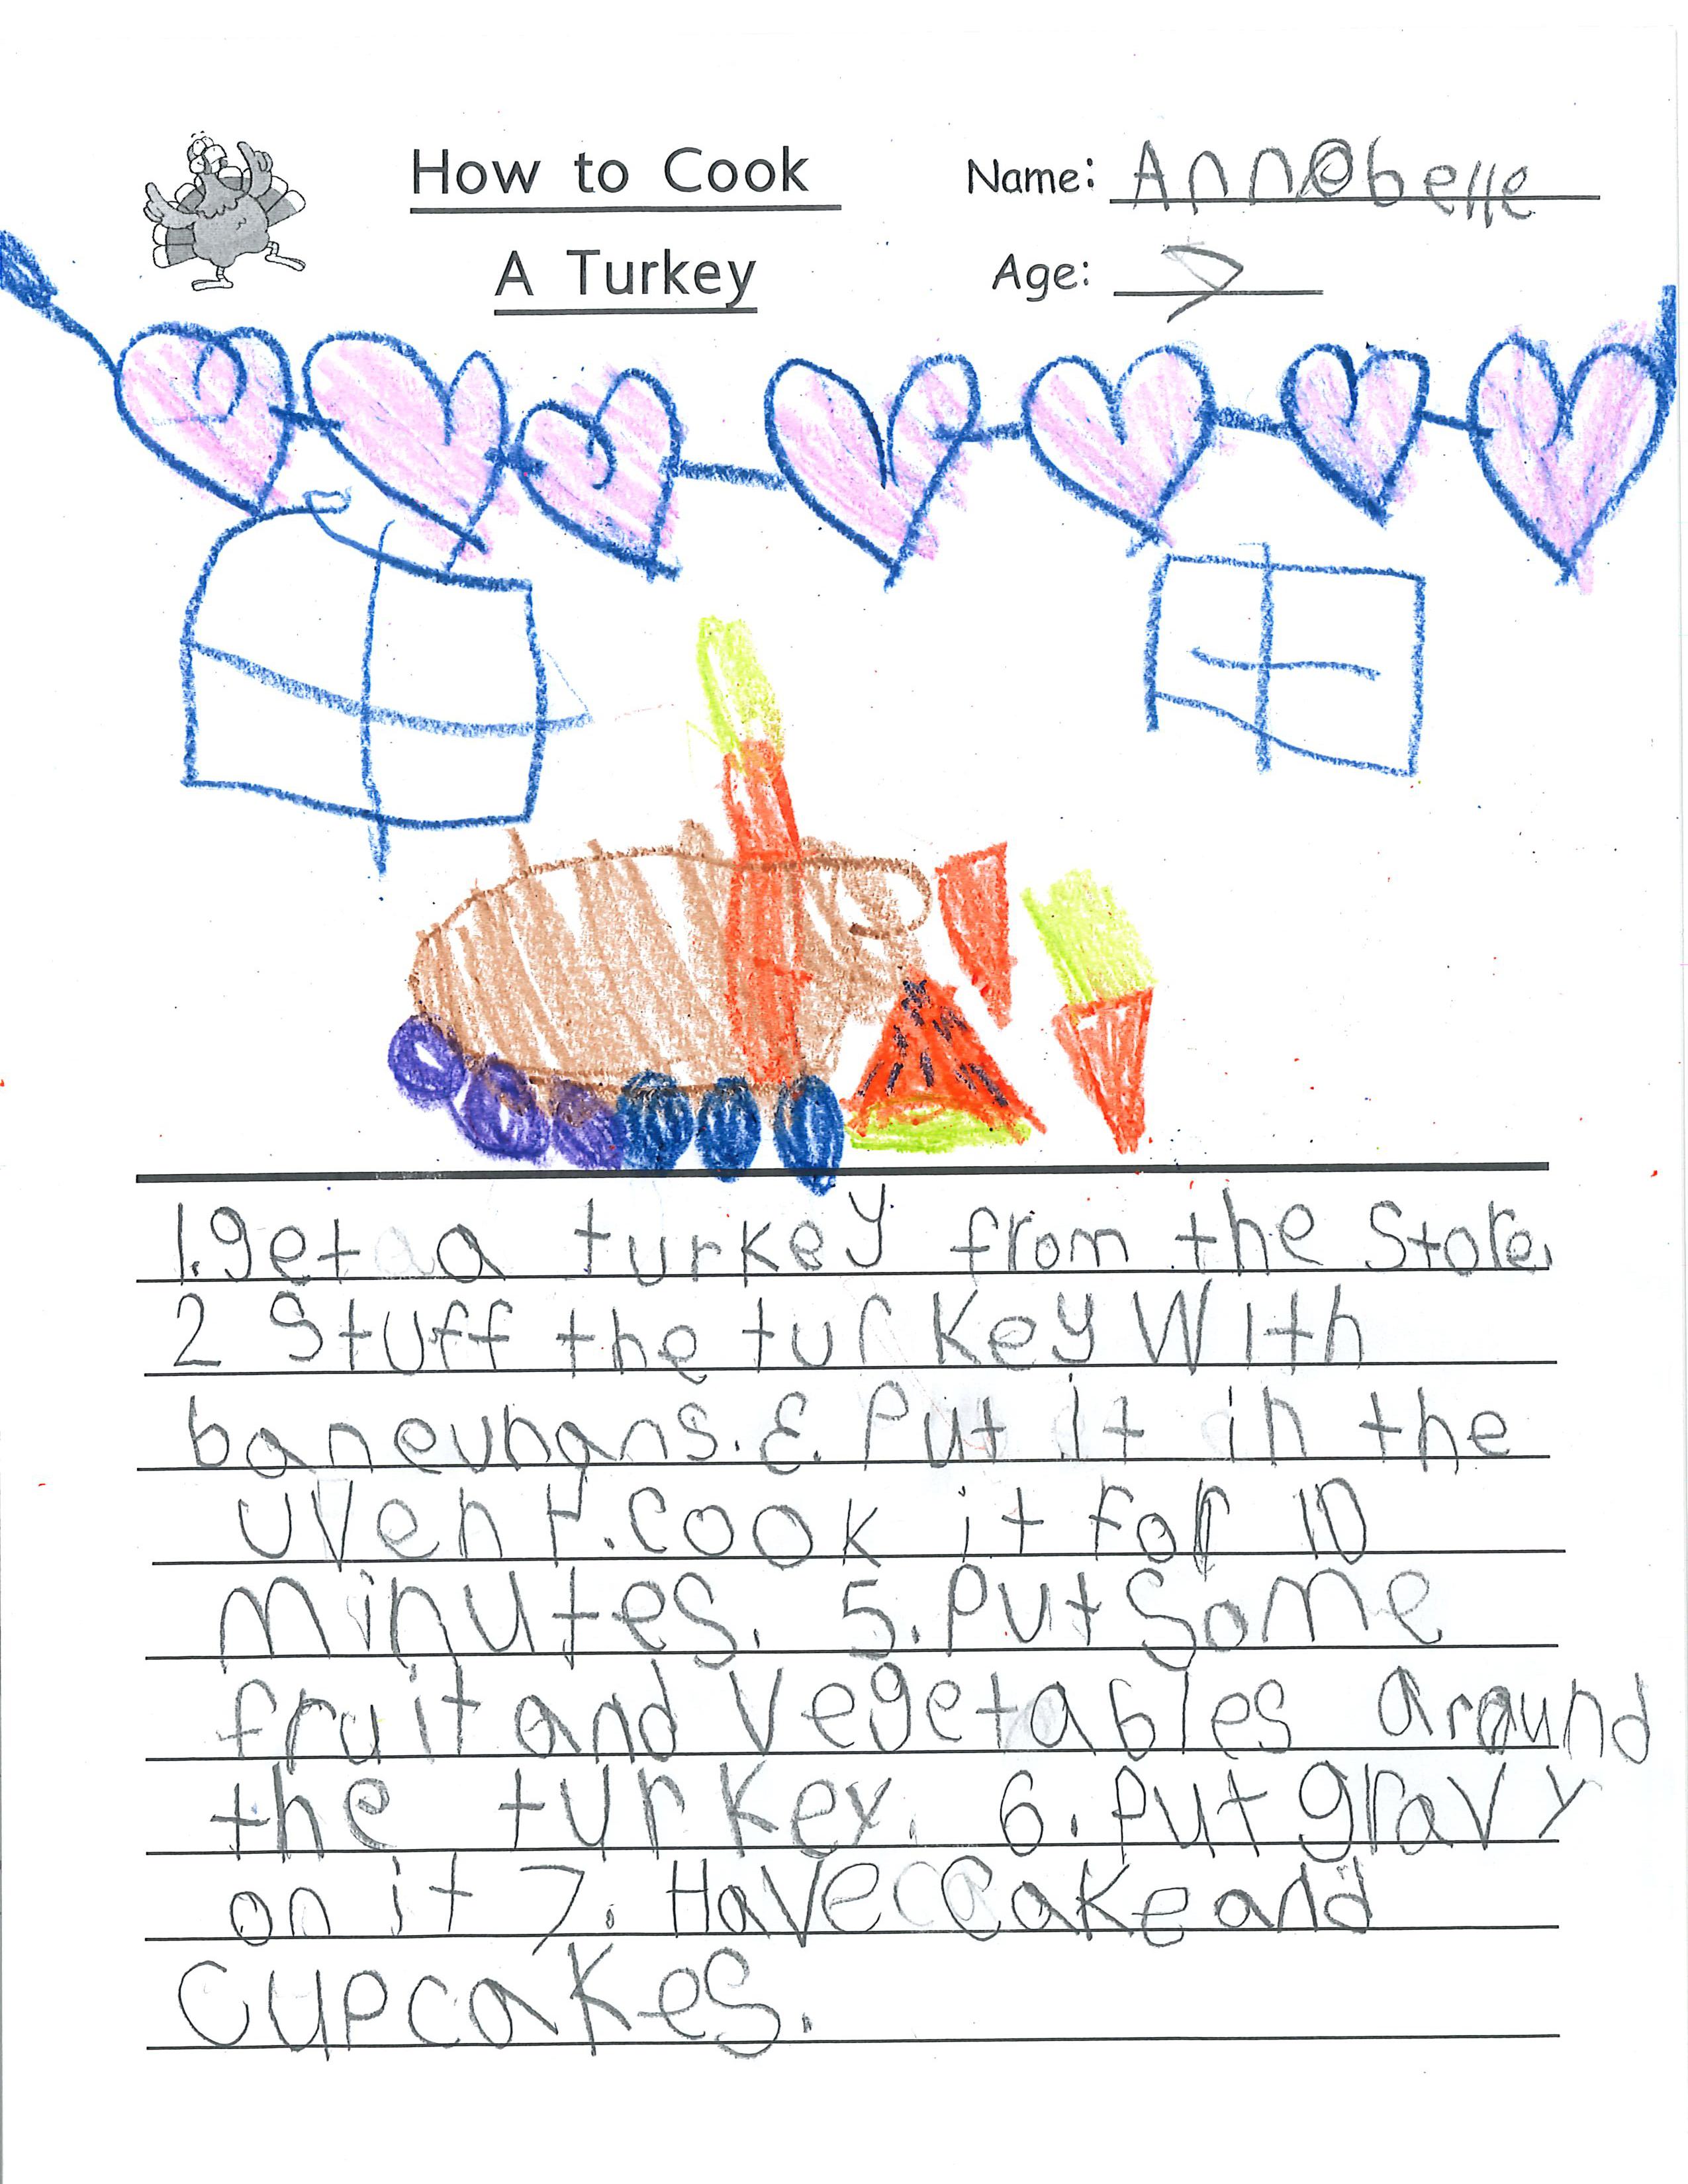 How to Cook
A Turkey
Name: Annabelle
Age: 7
1. get a turkey from the Store.
2 Stuff the turkey With
baneunans. 3. Put it in the
uven 4. cook it for 10
minutes. 5. Put Some
fruit and vegetables around
the turkey. 6. Put gravy
on it 7. Have cake and
cupcakes.